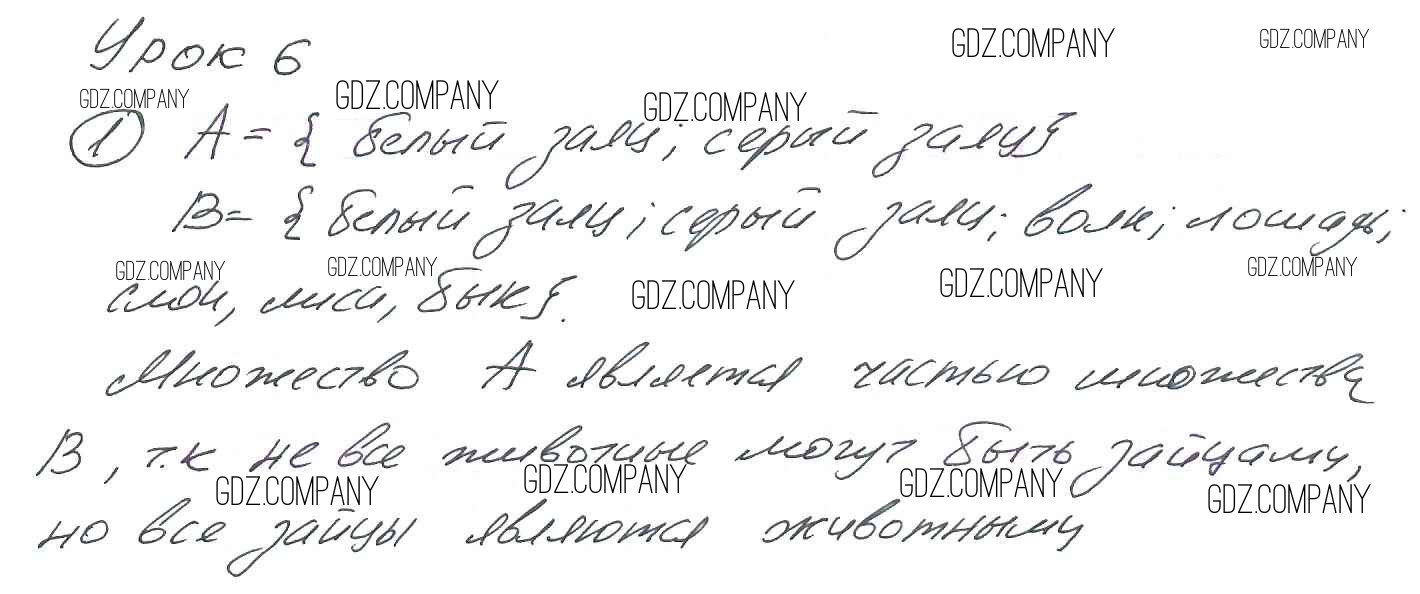 Урок 6
GDZ.COMPANY GDZ.COMPANY
GDZ.COMPANY GDZ.COMPANY GDZ.COMPANY
1 A = { белый заяц; серый заяц}
B = { белый заяц; серый заяц; волк; лошадь;
GDZ.COMPANY GDZ.COMPANY GDZ.COMPANY GDZ.COMPANY GDZ.COMPANY
слон, лиса, бык}.
Множество А является частью множества
В, т.к не все животные могут быть зайцами,
GDZ.COMPANY GDZ.COMPANY GDZ.COMPANY GDZ.COMPANY
но все зайцы являются животными